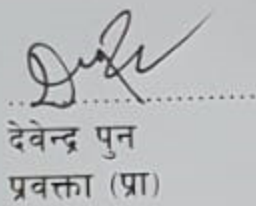 देवेन्द्र पुन
प्रवक्ता (प्रा)